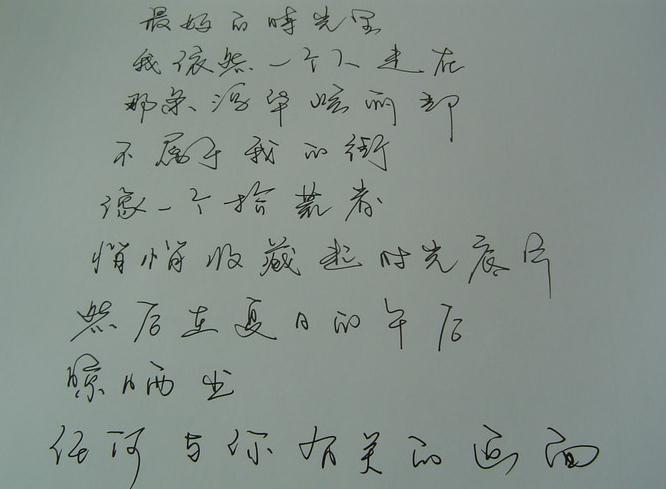 最好的时光里
我依然一个人走在
那条浮华炫丽却
不属于我的街
像一个拾荒者
悄悄收藏起时光底片
然后在夏日的午后
晾晒出
任何与你有关的画面